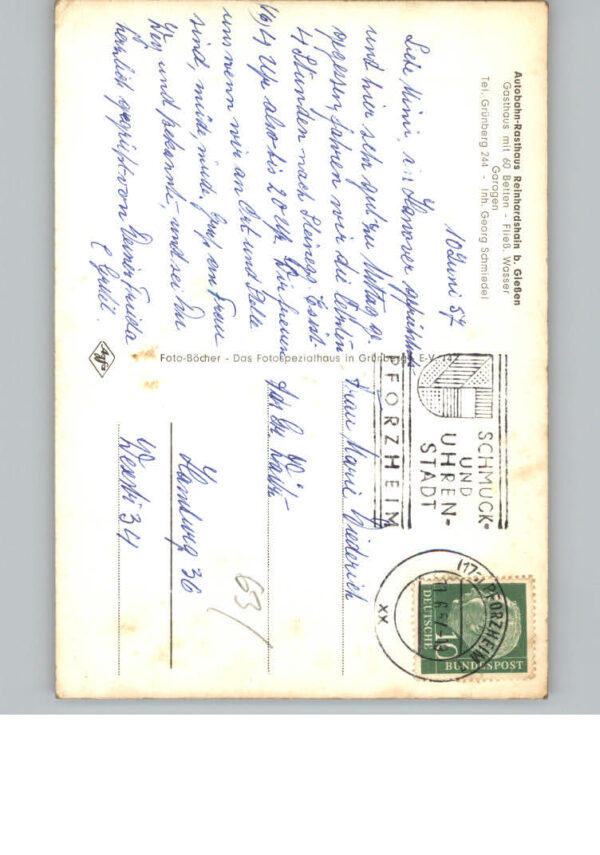 Autobahn-Rasthaus Reinhardshain b. Gießen
Gasthaus mit 60 Betten - Fließ. Wasser
Garagen
Tel. Grünberg 244 - Inh. Georg Schmiedel
10 Juni 57
Liebe Mimi, in Hannover gefrühstückt
und hier sehr gut zu Mittag ge-
gessen, fahren wir die letzten
4 Stunden nach
16,4 Uhr also bis 20 Uhr. Wir freuen
uns wenn wir an Ort und Stelle
sind, müde, müde. Gruß an Frau
und bekannt, und sei Du
herzlich gegrüßt von Deiner Frieda
Agfa
Foto-Böcher - Das Fotospezialhaus in Grünberg E-V 142
SCHMUCK-
UND
UHREN-
STADT
PFORZHEIM
(17a) PFORZHEIM
xx
10
DEUTSCHE
BUNDESPOST
Frau Marie Diederich
Hamburg 36
34
63/